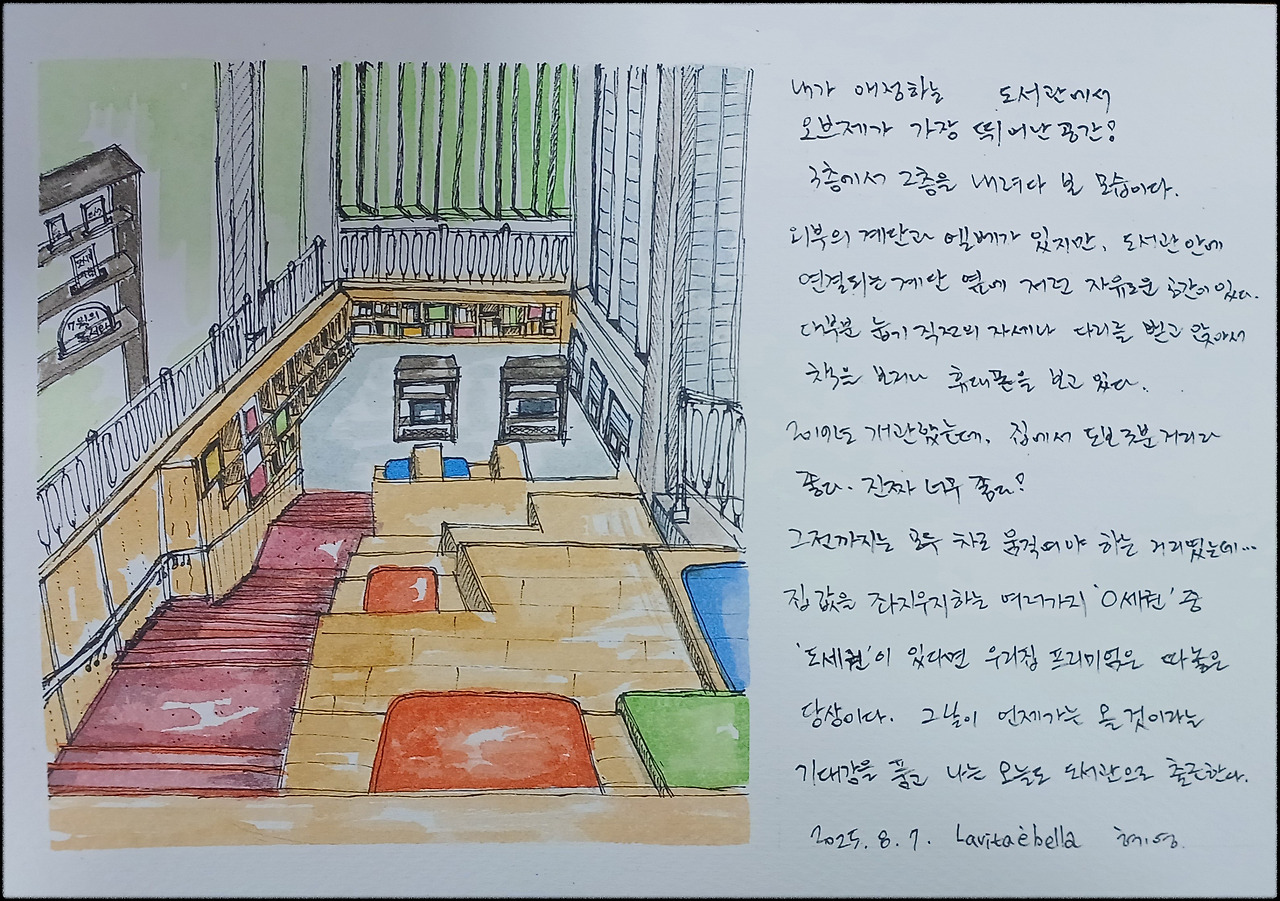 7월의
내가 애정하는 도서관에서
오브제가 가장 뛰어난 공간!
3층에서 2층을 내려다 본 모습이다.
외부의 계단과 엘베가 있지만, 도서관 안에
연결되는 계단 옆에 저런 자유로운 공간이 있다.
대부분 눕기 직전의 자세나 다리를 뻗고 앉아서
책을 보거나 휴대폰을 보고 있다.
2019년도 개관했는데, 집에서 도보 3분 거리라
좋다. 진짜 너무 좋다!
그전까지는 모두 차로 움직여야 하는 거리였는데...
집값을 좌지우지하는 여러가지 'O세권' 중
'도세권'이 있다면 우리집 프리미엄은 따 놓은
당상이다. 그날이 언제가는 올 것이라는
기대감을 품고 나는 오늘도 도서관으로 출근한다.
2025. 8. 7. Lavitaèbella 혜영.